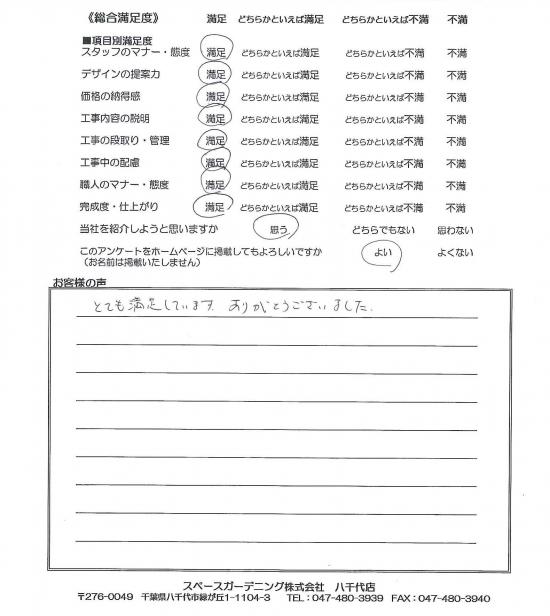 《総合満足度》 満足 どちらかといえば満足 どちらかといえば不満 不満
■項目別満足度
スタッフのマナー・態度 満足 どちらかといえば満足 どちらかといえば不満 不満
デザインの提案力 満足 どちらかといえば満足 どちらかといえば不満 不満
価格の納得感 満足 どちらかといえば満足 どちらかといえば不満 不満
工事内容の説明 満足 どちらかといえば満足 どちらかといえば不満 不満
工事の段取り・管理 満足 どちらかといえば満足 どちらかといえば不満 不満
工事中の配慮 満足 どちらかといえば満足 どちらかといえば不満 不満
職人のマナー・態度 満足 どちらかといえば満足 どちらかといえば不満 不満
完成度・仕上がり 満足 どちらかといえば満足 どちらかといえば不満 不満
当社を紹介しようと思いますか 思う どちらでもない 思わない
このアンケートをホームページに掲載してもよろしいですか よい よくない
（お名前は掲載いたしません）
お客様の声
とても満足しています. ありがとうございました.
スペースガーデニング株式会社 八千代店
〒276-0049 千葉県八千代市緑が丘1-1104-3 TEL：047-480-3939 FAX：047-480-3940